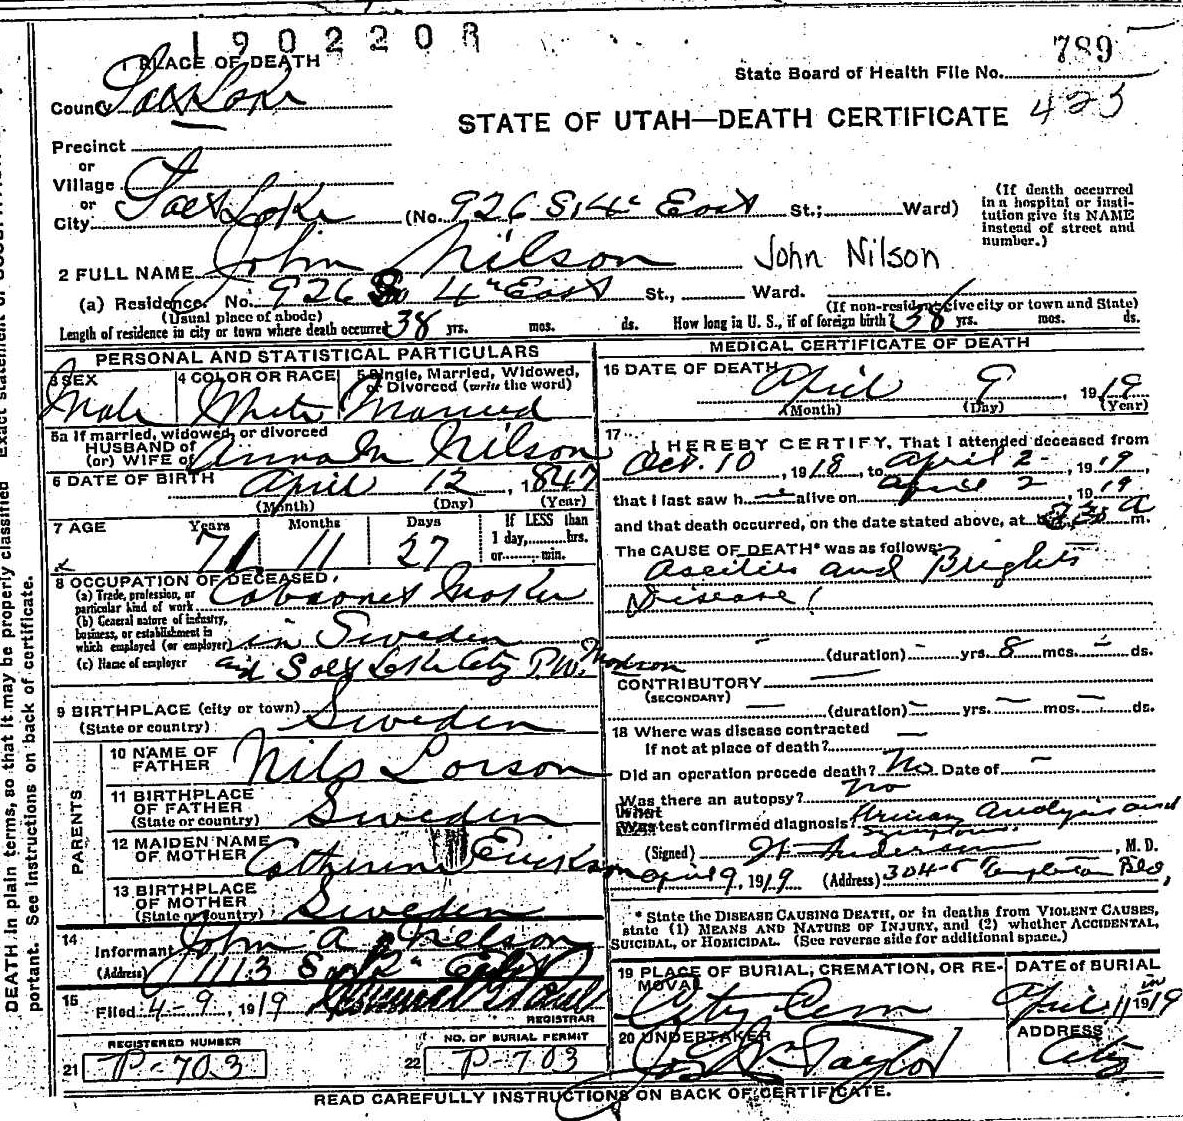 1902208
789
1 PLACE OF DEATH
State Board of Health File No.
County Salt Lake
STATE OF UTAH—DEATH CERTIFICATE 425
Precinct
or
Village
or
City Salt Lake (No. 926 So. 4th East St.; Ward)
(If death occurred in a hospital or institution give its NAME instead of street and number.)
2 FULL NAME John Nilson John Nilson
(a) Residence. No. 926 So 4th East St., Ward.
(Usual place of abode) (If non-resident give city or town and State)
Length of residence in city or town where death occurred 38 yrs. mos. ds. How long in U. S., if of foreign birth? 38 yrs. mos. ds.
PERSONAL AND STATISTICAL PARTICULARS
3 SEX 4 COLOR OR RACE 5 Single, Married, Widowed, or Divorced (write the word)
Male White Married
5a If married, widowed, or divorced
HUSBAND of
(or) WIFE of Anna M Nilson
6 DATE OF BIRTH April 12, 1847
(Month) (Day) (Year)
7 AGE Years Months Days If LESS than
1 day, hrs.
or min.
71 11 27
8 OCCUPATION OF DECEASED
(a) Trade, profession, or particular kind of work Cabinet Maker
(b) General nature of industry, business, or establishment in which employed (or employer) in Sweden
(c) Name of employer and Salt Lake City P.W. Madson
9 BIRTHPLACE (city or town)
(State or country) Sweden
PARENTS
10 NAME OF FATHER Nils Larson
11 BIRTHPLACE OF FATHER
(State or country) Sweden
12 MAIDEN NAME OF MOTHER Catherine Erickson
13 BIRTHPLACE OF MOTHER
(State or country) Sweden
14 Informant John A Nelson
(Address) 1113 So East
15 Filed 4-9, 1919
REGISTRAR
REGISTERED NUMBER
21 P-703
NO. OF BURIAL PERMIT
22 P-703
MEDICAL CERTIFICATE OF DEATH
16 DATE OF DEATH April 9 1919
(Month) (Day) (Year)
17 I HEREBY CERTIFY, That I attended deceased from
Oct. 10, 1918, to April 2, 1919,
that I last saw h alive on April 2, 1919
and that death occurred, on the date stated above, at A m.
The CAUSE OF DEATH* was as follows:
Ascities and Brights
Disease
(duration) yrs. 8 mos. ds.
CONTRIBUTORY
(SECONDARY)
(duration) yrs. mos. ds.
18 Where was disease contracted
if not at place of death?
Did an operation precede death? No Date of
Was there an autopsy? No
What test confirmed diagnosis? Urinary Analysis and
Symptoms
(Signed) Anderson, M. D.
April 9, 1919 (Address) 304-5 Templeton Bld,
* State the DISEASE CAUSING DEATH, or in deaths from VIOLENT CAUSES, state (1) MEANS AND NATURE OF INJURY, and (2) whether ACCIDENTAL, SUICIDAL, or HOMICIDAL. (See reverse side for additional space.)
19 PLACE OF BURIAL, CREMATION, OR REMOVAL DATE of BURIAL
City Cem April 11 1919
20 UNDERTAKER ADDRESS
Jos. Wm Taylor City
READ CAREFULLY INSTRUCTIONS ON BACK OF CERTIFICATE.
DEATH in plain terms, so that it may be properly classified. Exact statement of
portant. See instructions on back of certificate.